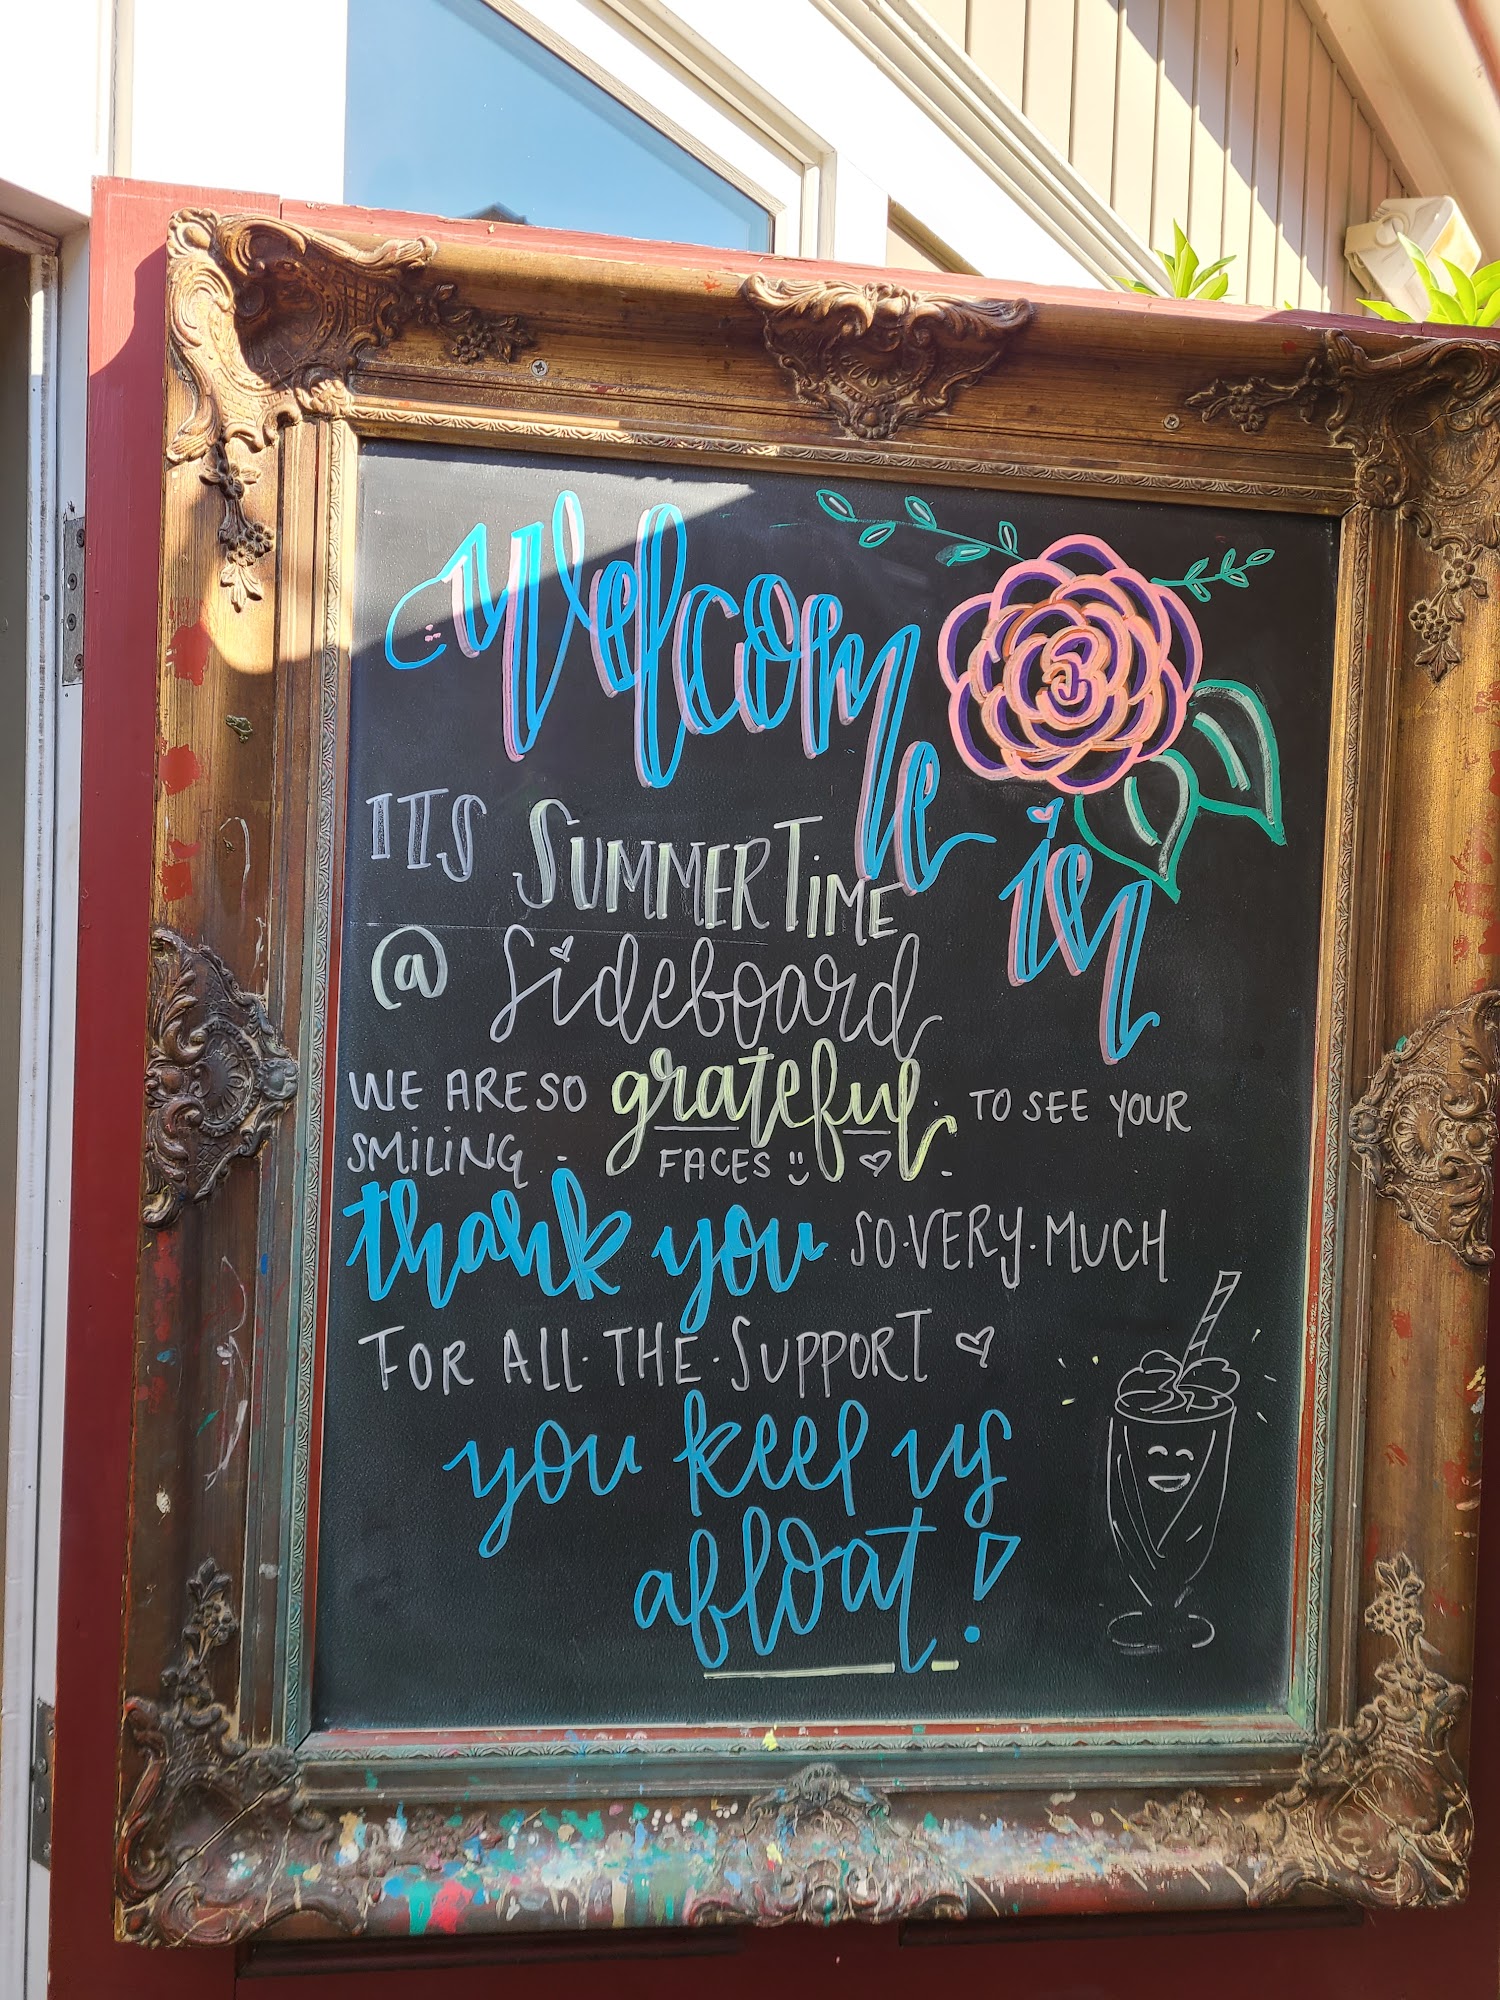 Welcome in
ITS SUMMERTIME
@ Sideboard
WE ARE SO grateful TO SEE YOUR
SMILING FACES
thank you SO·VERY·MUCH
FOR ALL·THE·SUPPORT
you keep us
afloat!